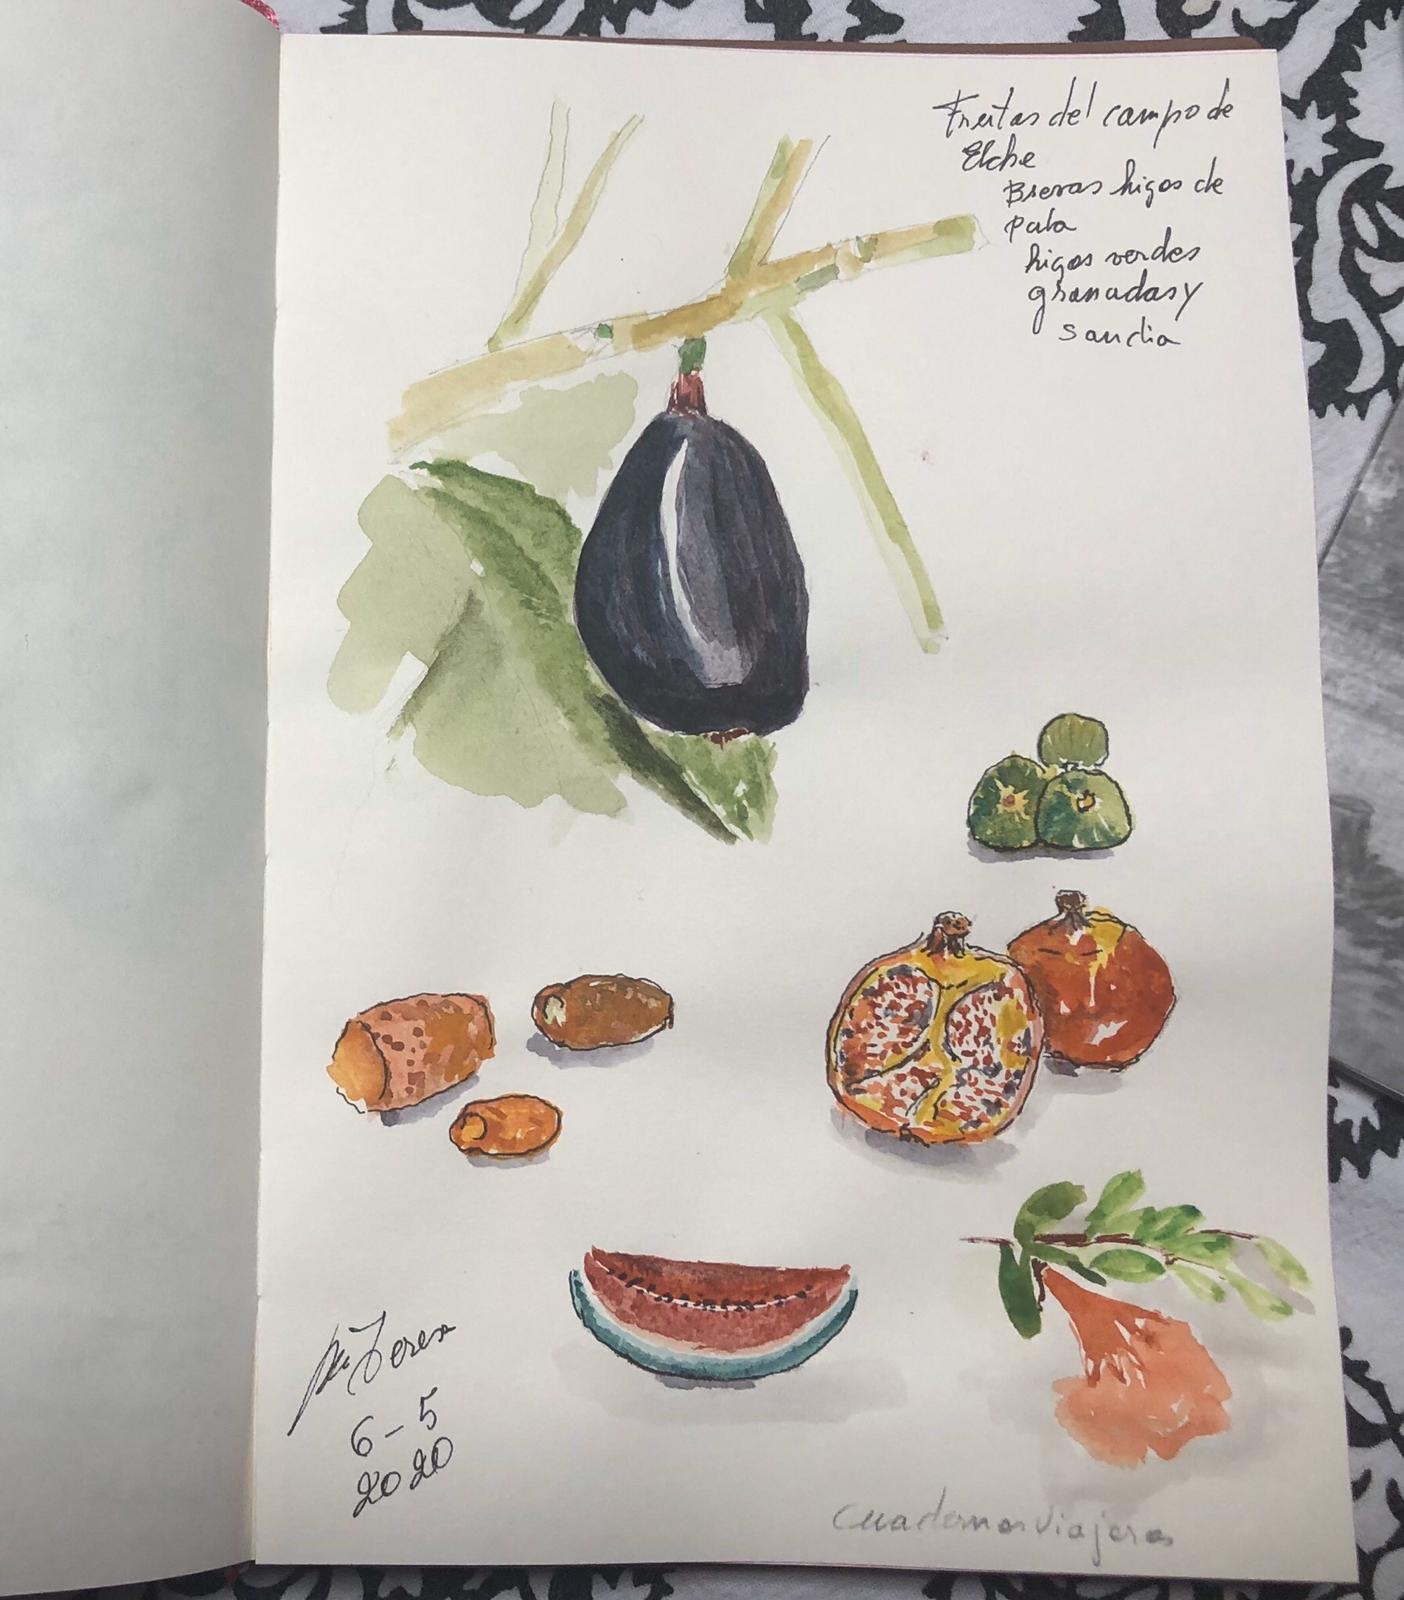 Frutas del campo de
Elche
Brevas higos de
pala
higos verdes
granadas y
sandia
Mª Teresa
6-5
2020
Cuadernos Viajeros